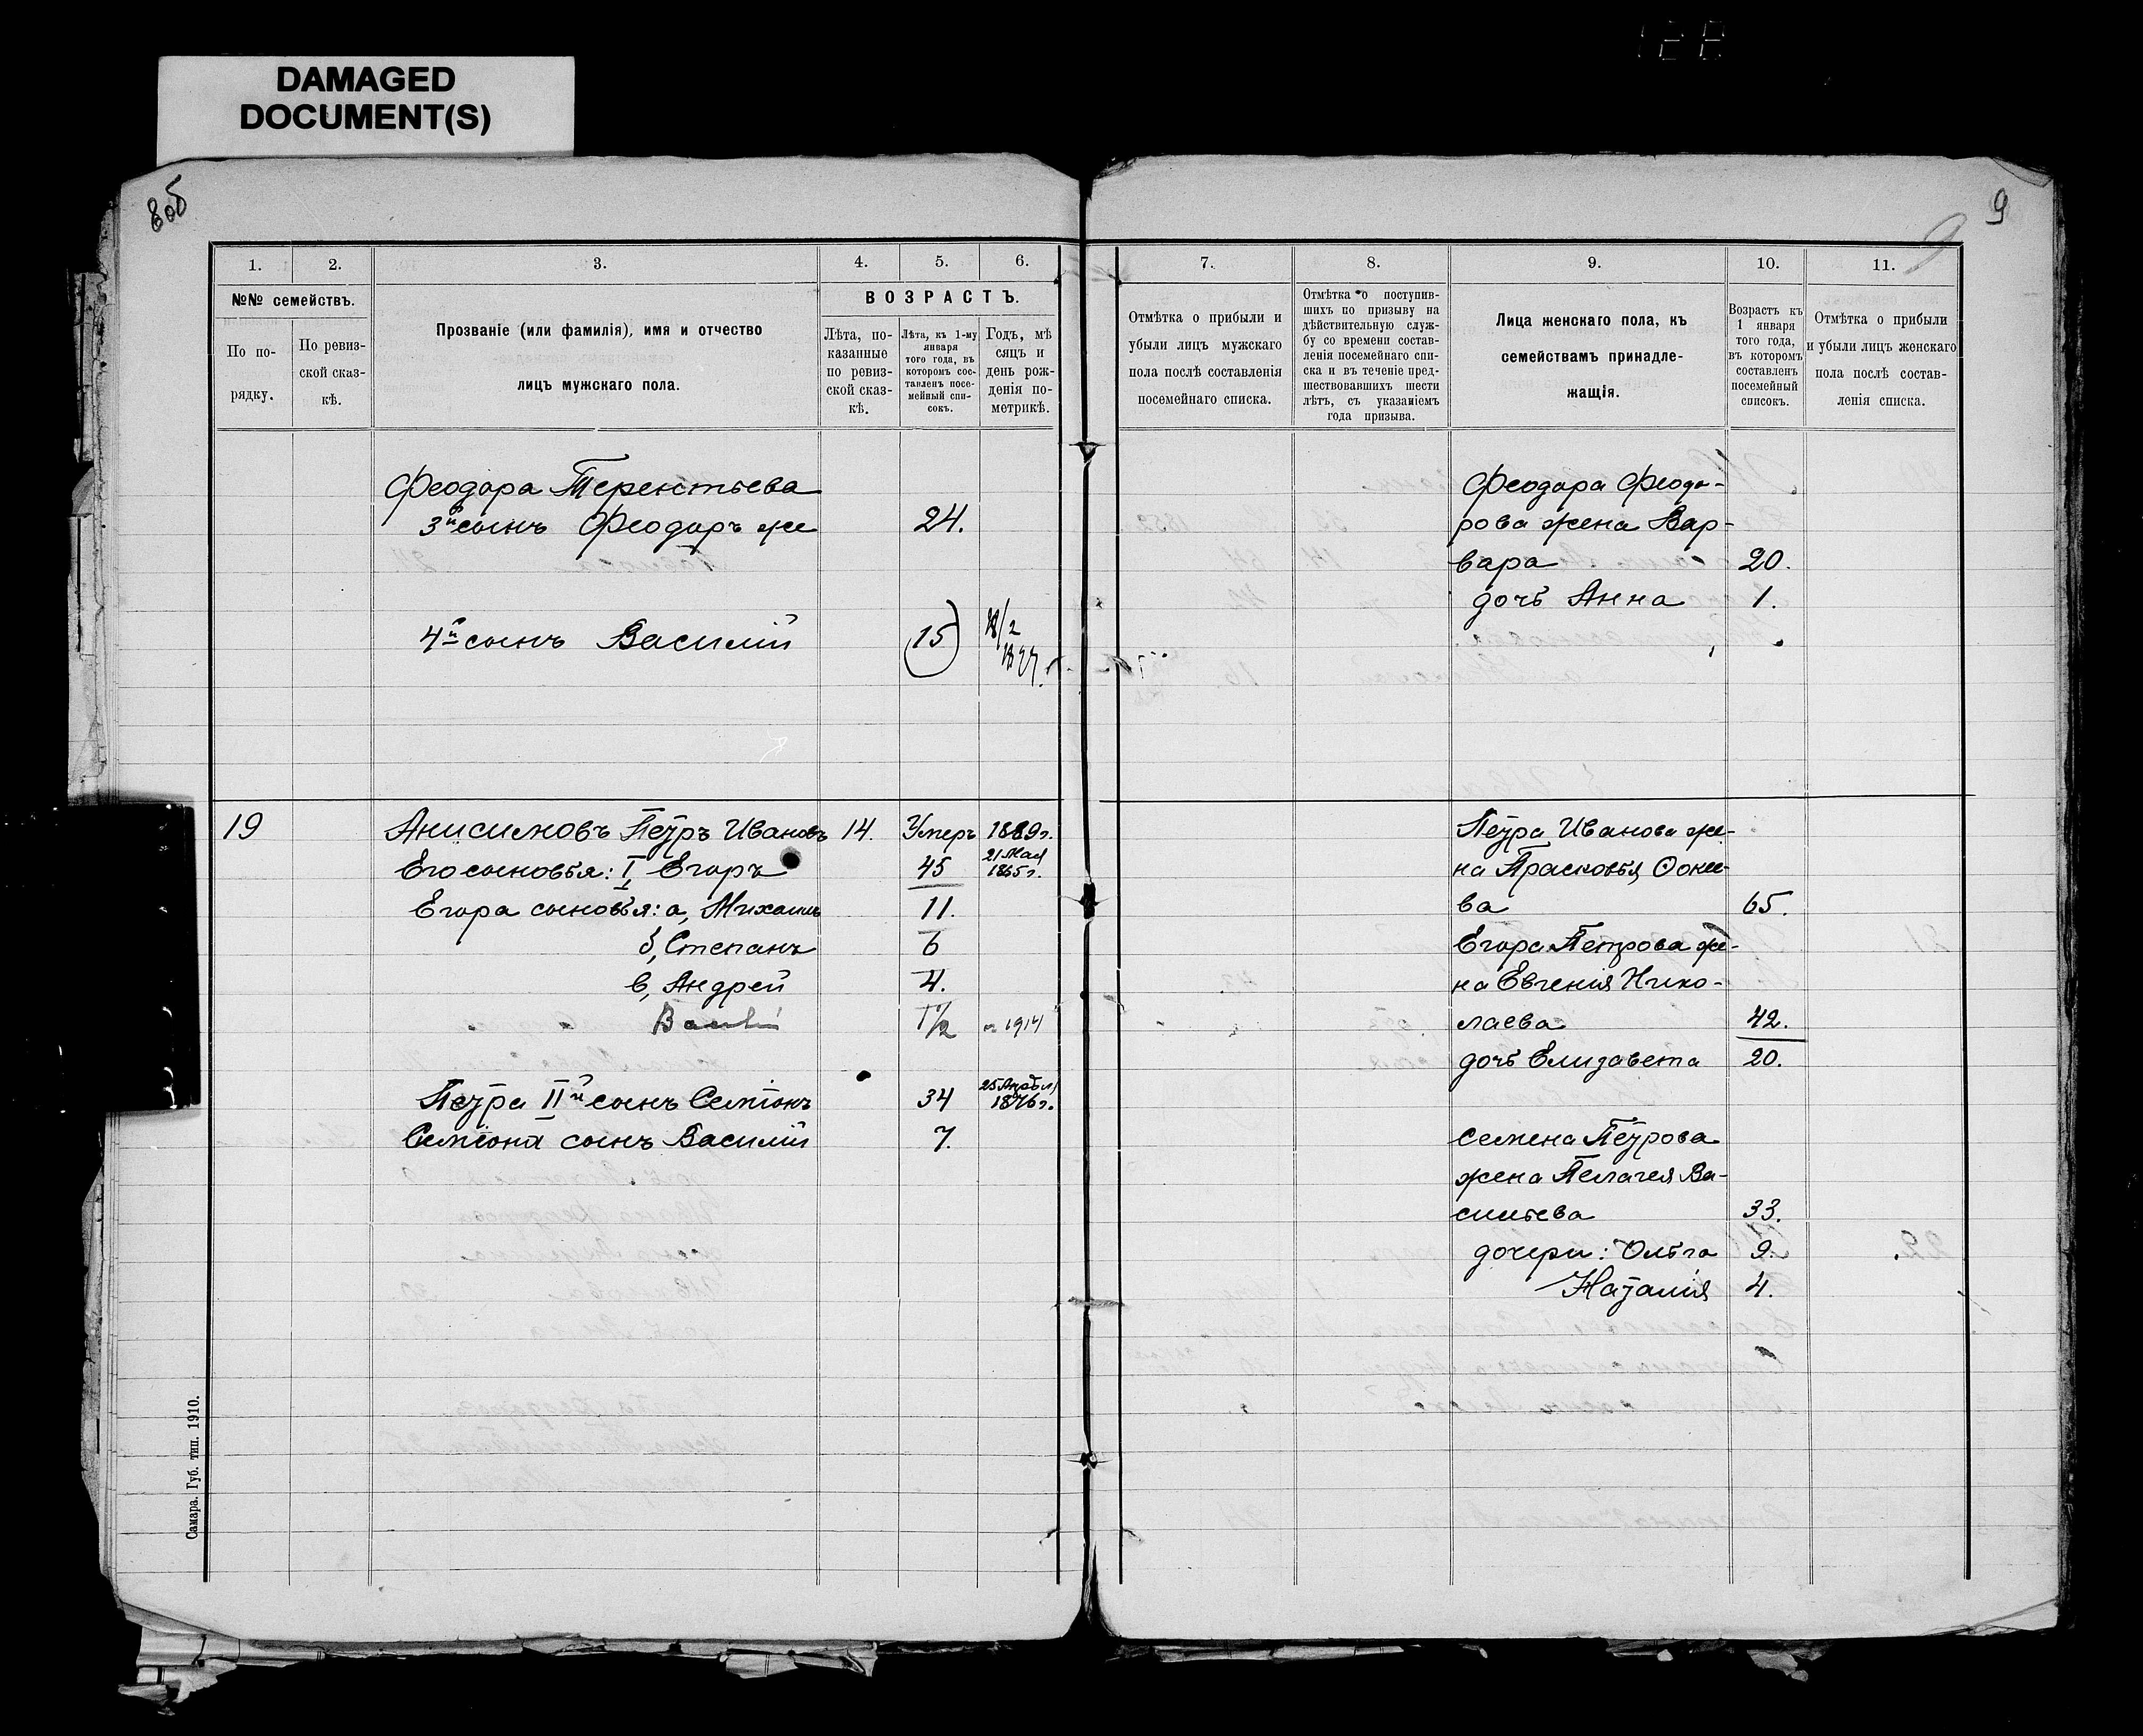 DAMAGED
DOCUMENT(S)
8об
1.
2.
3.
4.
5.
6.
№№ семействъ.
По по-
рядку.
По ревиз-
ской сказ-
кѣ.
Прозваніе (или фамилія), имя и отчество
лицъ мужскаго пола.
ВОЗРАСТЪ.
Лѣта, по-
казанные
по ревиз-
ской сказ-
кѣ.
Лѣта, къ 1-му
января
того года, въ
которомъ сос-
тавленъ посе-
мейный спи-
сокъ.
Годъ, мѣ
сяцъ и
день рож-
денія по-
метрикѣ.
Феодора Терентьева
3й сынъ Феодоръ же 24.
4й сынъ Василій 15
19 Анисимовъ Петръ Ивановъ 14. Умеръ 1889г.
Его сыновья: I, Егоръ 45 21 Мая 1865г.
Егора сыновья: а, Михаилъ 11.
б, Степанъ 6
в, Андрей 4.
Василій 1½ 1914
Петра IIй сынъ Семіонъ 34 25 Апрѣля 1876г.
Семіона сынъ Василій 7.
Самара. Губ. тип. 1910.
9
9
7.
8.
9.
10.
11.
Отмѣтка о прибыли и
убыли лицъ мужскаго
пола послѣ составленія
посемейнаго списка.
Отмѣтка о поступив-
шихъ по призыву на
дѣйствительную служ-
бу со времени состав-
ленія посемейнаго спи-
ска и въ теченіе пред-
шествовавшихъ шести
лѣтъ, съ указаніемъ
года призыва.
Лица женскаго пола, къ
семействамъ принадле-
жащія.
Возрастъ къ
1 января
того года,
въ которомъ
составленъ
посемейный
списокъ.
Отмѣтка о прибыли
и убыли лицъ женскаго
пола послѣ состав-
ленія списка.
Феодора Феодо-
рова жена Вар-
вара 20.
дочь Анна 1.
Петра Иванова же-
на Прасковья
ва 65.
Егора Петрова же-
на Евгенія Нико-
лаева 42.
дочь Елизавета 20.
Семена Петрова
жена Пелагея Ва-
сильева 33.
дочери: Ольга 9.
Наталія 4.